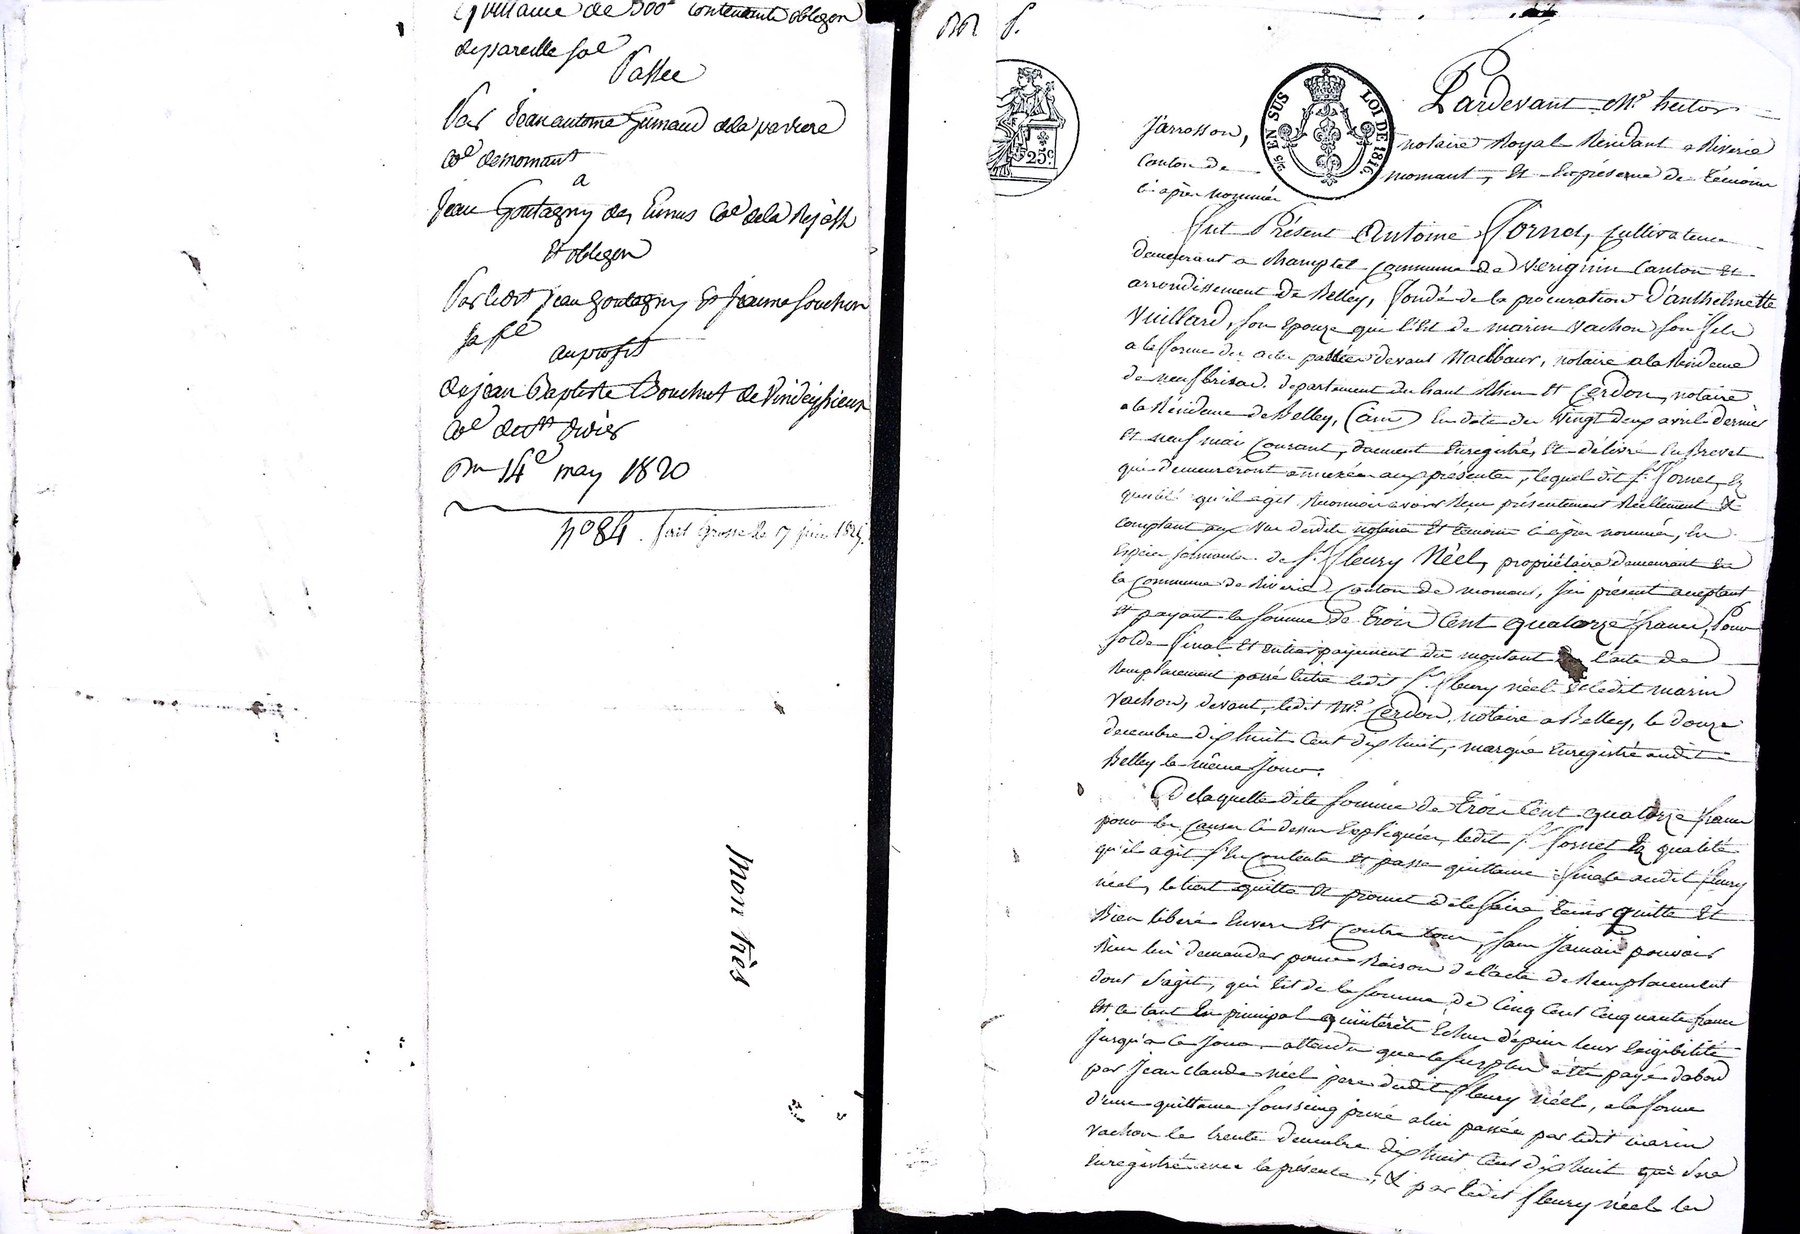 quittance de 500f contenante oblgon
de pareille se
Passée
Par Jean antoine Guinand de la
Coe de mornant
a
Jean Goutagny des Coe de la
et oblgon
Par ledt jean goutagny et jeanne Souchon
sa fe
au profit
de jean Baptiste Bouchut de
Coe de st didier
Du 14e may 1820
n° 84. fait Grosse le 7 juin
mon très
Pardevant Me hector
Jarrosson, notaire Royal Résidant a Riverie
Canton de mornant, et En présence de témoins
ci après nommés
Fut Présent Antoine Fornet, Cultivateur
demeurant a Champtel Commune de Verignin Canton et
arrondissement de Belley, fondé de la procuration d'anthelmette
Vuillard, son Epouze que l'Est de marin Vachon son fils
a la forme des actes passés devant notaire a la Résidence
de neufbrisac departement du haut Rhin et Cerdon, notaire
a la Résidence de Belley, (ain) En date du Vingt deux avril dernier
et neuf mai Courant, dument Enregistrés, Et délivré En Brevet
qui demeureront annexés aux présentes, lequel dit sr. Fornet, En
qualité qu'il agit Reconnoit avoir Reçu présentement Réellement &
comptant aux Vue dudit notaire et témoins ci après nommés, En
Espèces sonnantes de sr. fleury Néel, propriétaire demeurant En
la Commune de Riverie Canton de mornant, Ici présent acceptant
et payant la somme de Trois Cent quatorze francs, Pour
solde final et entier payement du montant de l'acte de
Remplacement passé Entre ledit sr. fleury néel et ledit marin
Vachon, devant, ledit Me. Cerdon, notaire a Belley, le douze
decembre dix huit Cent dix huit, marqué Enregistré audit
Belley le même Jour.
De laquelle dite somme de trois Cent quatorze francs
pour les Causes ci dessus Expliquées, ledit sr fornet En qualité
qu'il agit s'En Contente et passe quittance finale audit fleury
néel, le tient quitte et promet de le faire tenir quitte et
Bien libéré Envers Et Contre tous, sans Jamais pouvoir
Rien lui demander pour Raison de l'acte de Remplacement
dont s'agit, qui Est de la somme de Cinq Cent Cinquante francs
Et ce tant En principal qu'intérêts Echus depuis leur Exigibilité
Jusqu'à ce Jour attendu que le surplus a été payé d'abord
par Jean Claude néel pere dudit fleury Néel, a la forme
d'une quittance sous seing privé a lui passée par ledit marin
Vachon le trente decembre dix huit Cent dix huit qui sera
Enregistrée avec la présente, & par ledit fleury néel les
25c
25c EN SUS LOI DE 1816